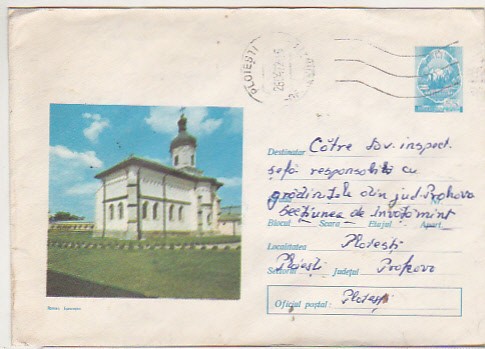 PLOIEȘTI
Destinatar Către tov. inspect.
șefă responsabilă cu
grădinițele din jud. Prahova
Secțiunea de învățămînt
Blocul Scara Etajul Apart.
Localitatea Ploiești
Ploiești Sectorul Județul Prahova
Oficiul poștal: Ploiești